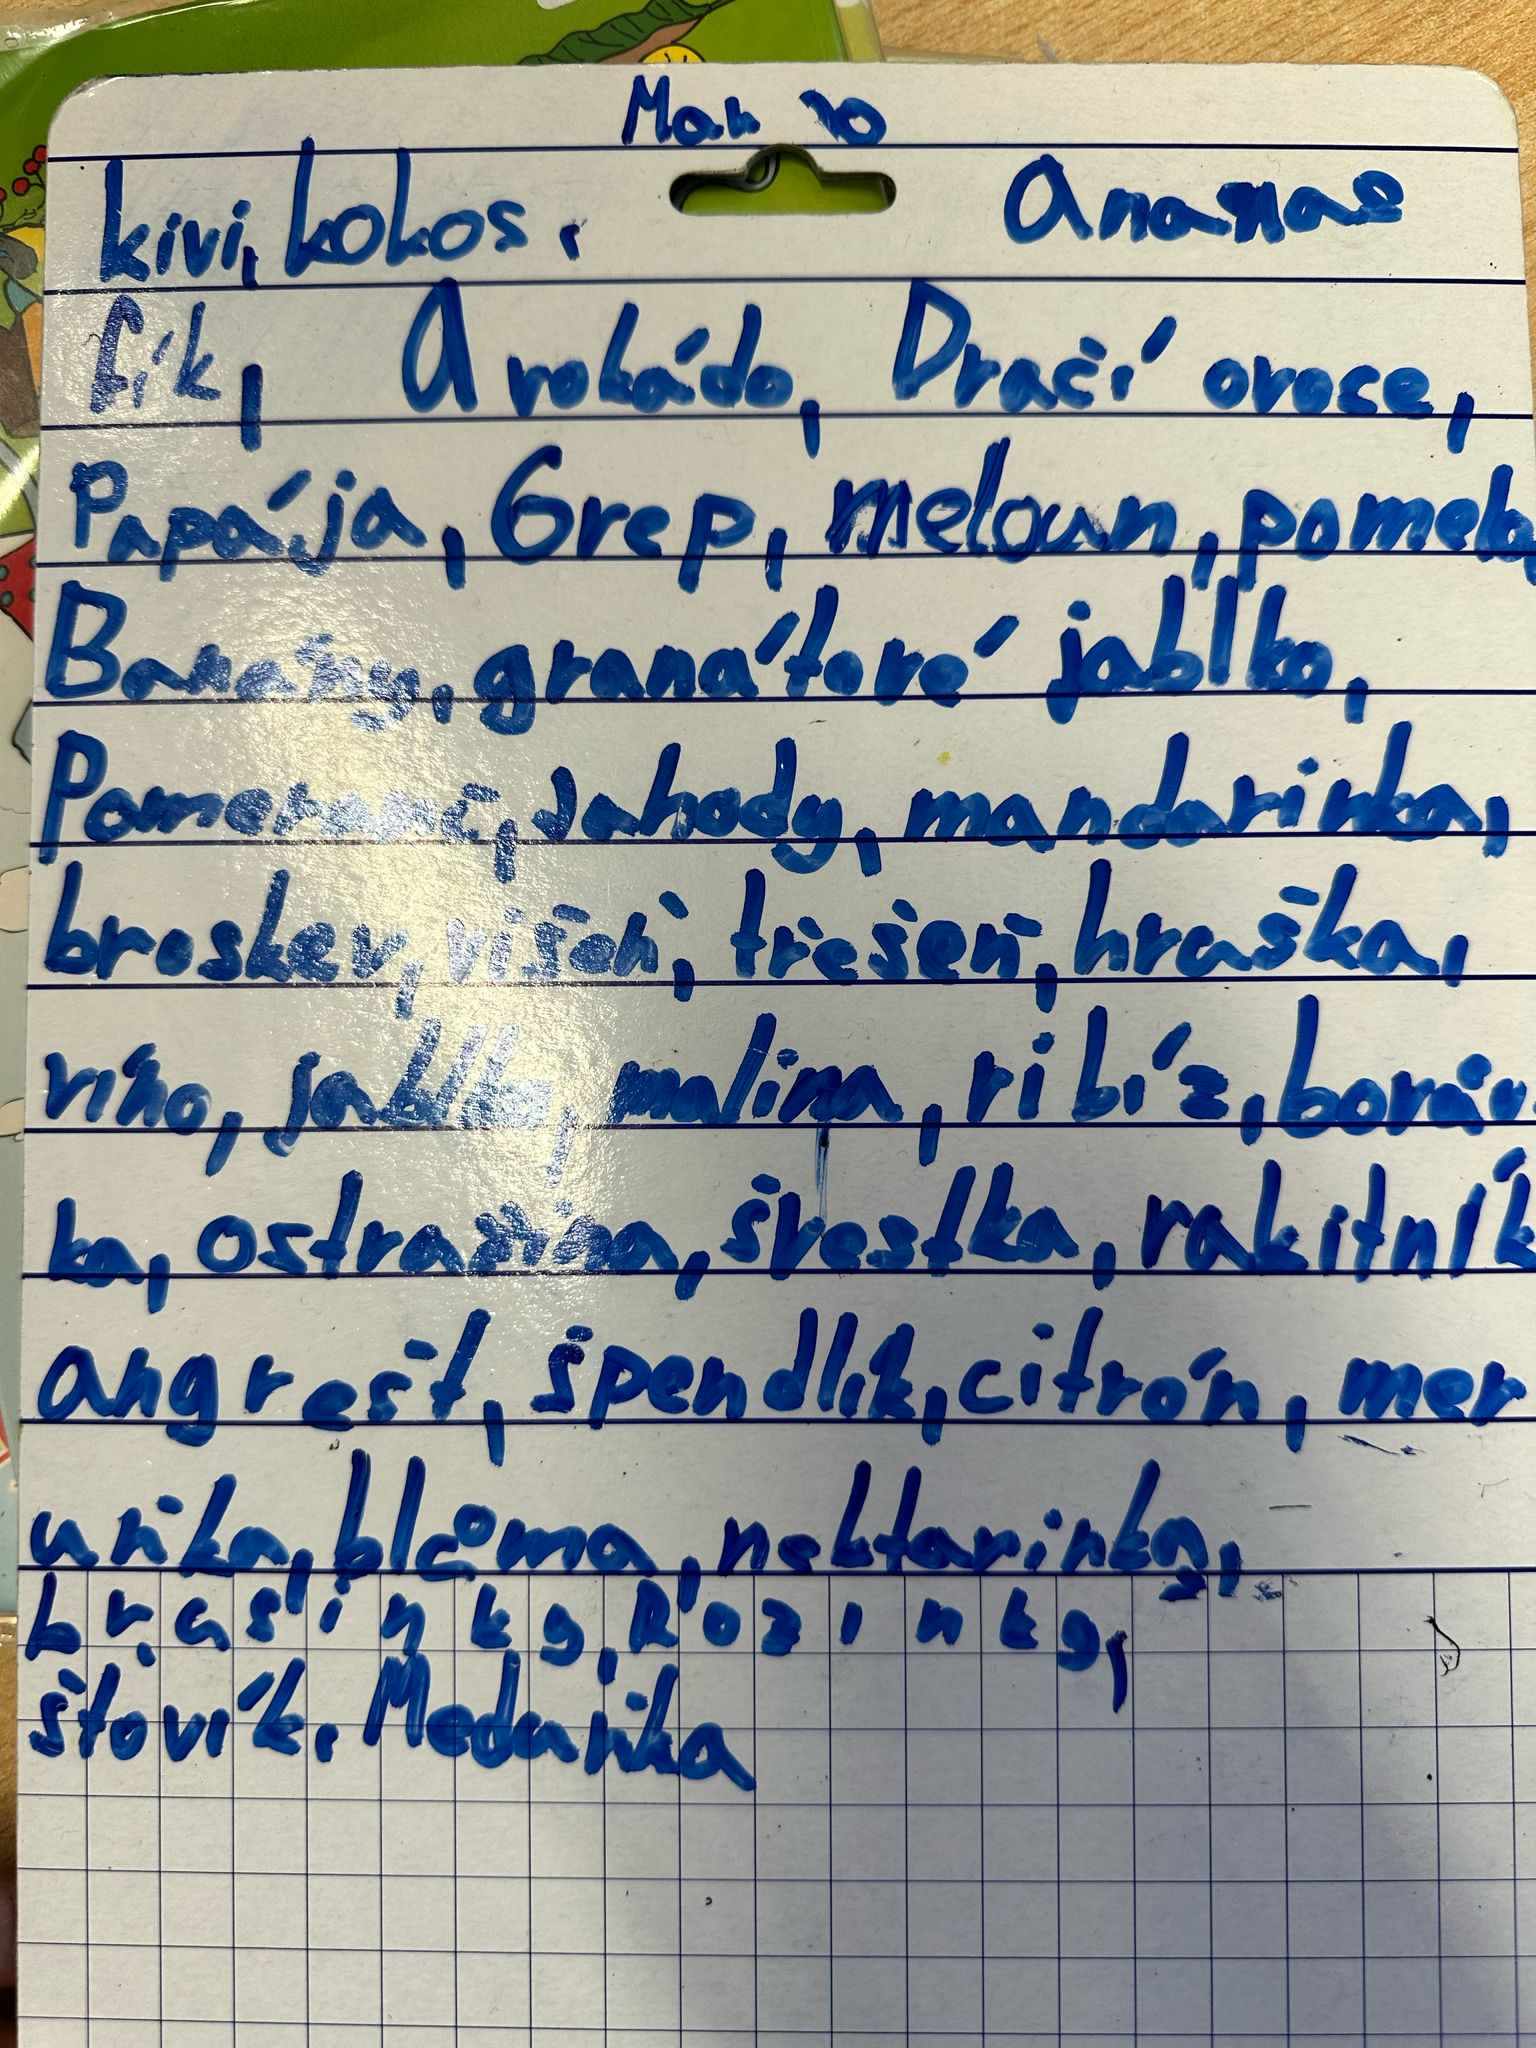 Man go
kivi, kokos, Ananas
fík, Avokádo, Dračí ovoce,
Papája, Grep, meloun, pomelo,
Banány, granátové jablko,
Pomeranč, Jahody, mandarinka,
broskev, višeň, třešeň, hruška,
víno, jablko, malina, ribíz, borův
ka, ostružina, švestka, rakitník
angrešt, špendlík, citrón, mer
uňka, blůma, nektarinka,
brasinky, Rozinky,
štovík, Meduňka